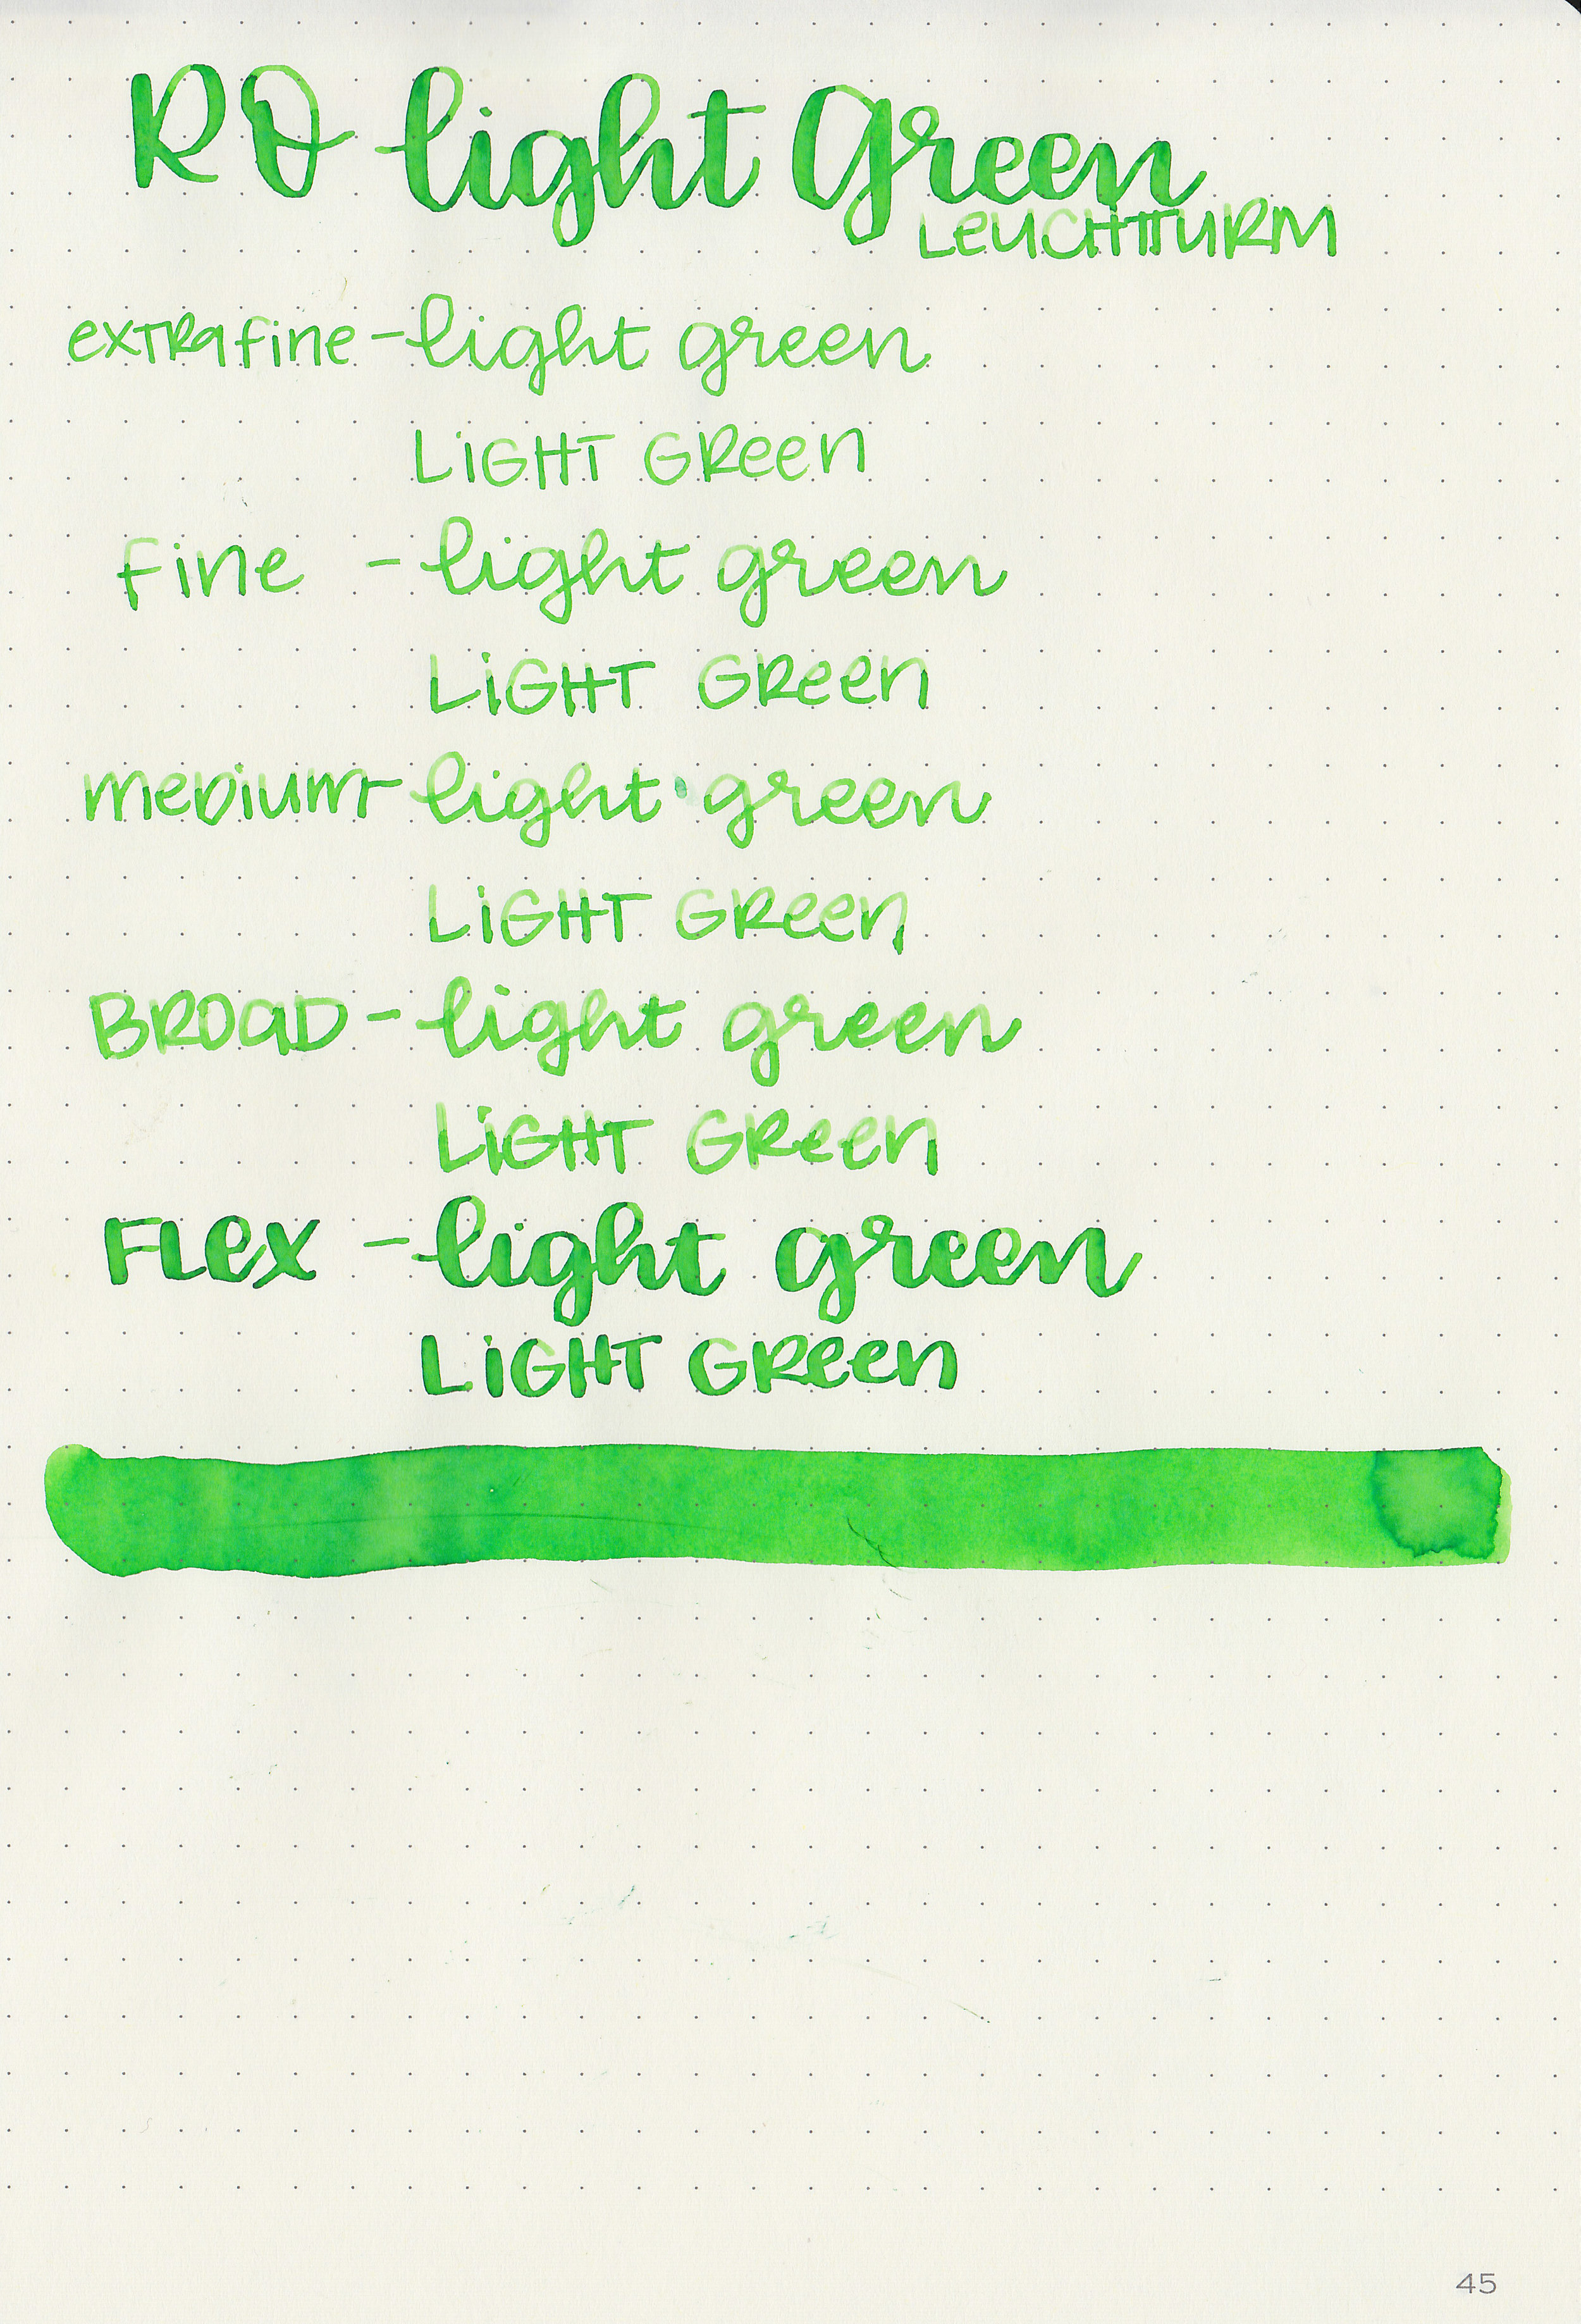 RO light Green
LEUCHTTURM
extra fine - light green
LiGHT GReen
fine - light green
LiGHT GReen
meDium - light green
LiGHT GReen
BROaD - light green
LiGHT GReen
FLex - light green
LiGHT GReen
45